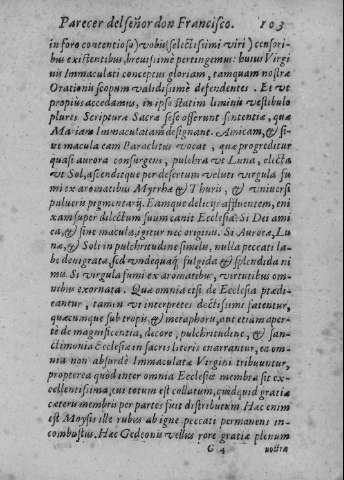 Parecer del señor don Francisco. 103
in foro contentioso) vobis (selectissimi viri) censori-
bus existentibus, breuissimè pertingemus: huius Virgi
nis Immaculati conceptus gloriam, tamquam nostræ
Orationis scopum validissimè defendentes. Et vt
propius accedamus, in ipso statim liminis vestibulo
plures Scripturæ Sacræ sese offerunt sententiæ, quæ
Mariam Immaculatam designant. Amicam, & si-
ne macula eam Paraclitus vocat, quæ progreditur
quasi aurora consurgens, pulchra vt Luna, electa
vt Sol, ascenditque per desertum veluti virgula fu
mi ex aromatibus Myrrhæ & Thuris, & vniuersi
pulueris pigmentarij. Eamque delicijs affluentem, eni
xam super dilectum suum canit Ecclesia. Si Dei ami
ca, & sine macula: igitur nec originis. Si Auroræ, Lu
næ, & Soli in pulchritudine similis, nulla peccati la-
be denigrata, sed vndequaq; fulgida & splendida ni
mis. Si virgula fumi ex aromatibus, virtutibus om-
nibus exornata. Quæ omnia etsi de Ecclesia prædi-
cantur, tamen vt interpretes doctissimi fatentur,
quæcumque sub tropis, & metaphoris, aut etiam aper-
tè de magnificentia, decore, pulchritudine, & san-
ctimonia Ecclesiæ in sacris literis enarrantur, ea om-
nia non absurdè Immaculatæ Virgini tribuuntur,
propterea quòd inter omnia Ecclesiæ membra sit ex-
cellentissima, cui totum est collatum, quidquid gratiæ
cæteris membris per partes fuit distributum. Hæc enim
est Moysis ille rubus ab igne peccati permanens in-
combustus. Hæc Gedeonis vellus rore gratiæ plenum
G 4 nostra